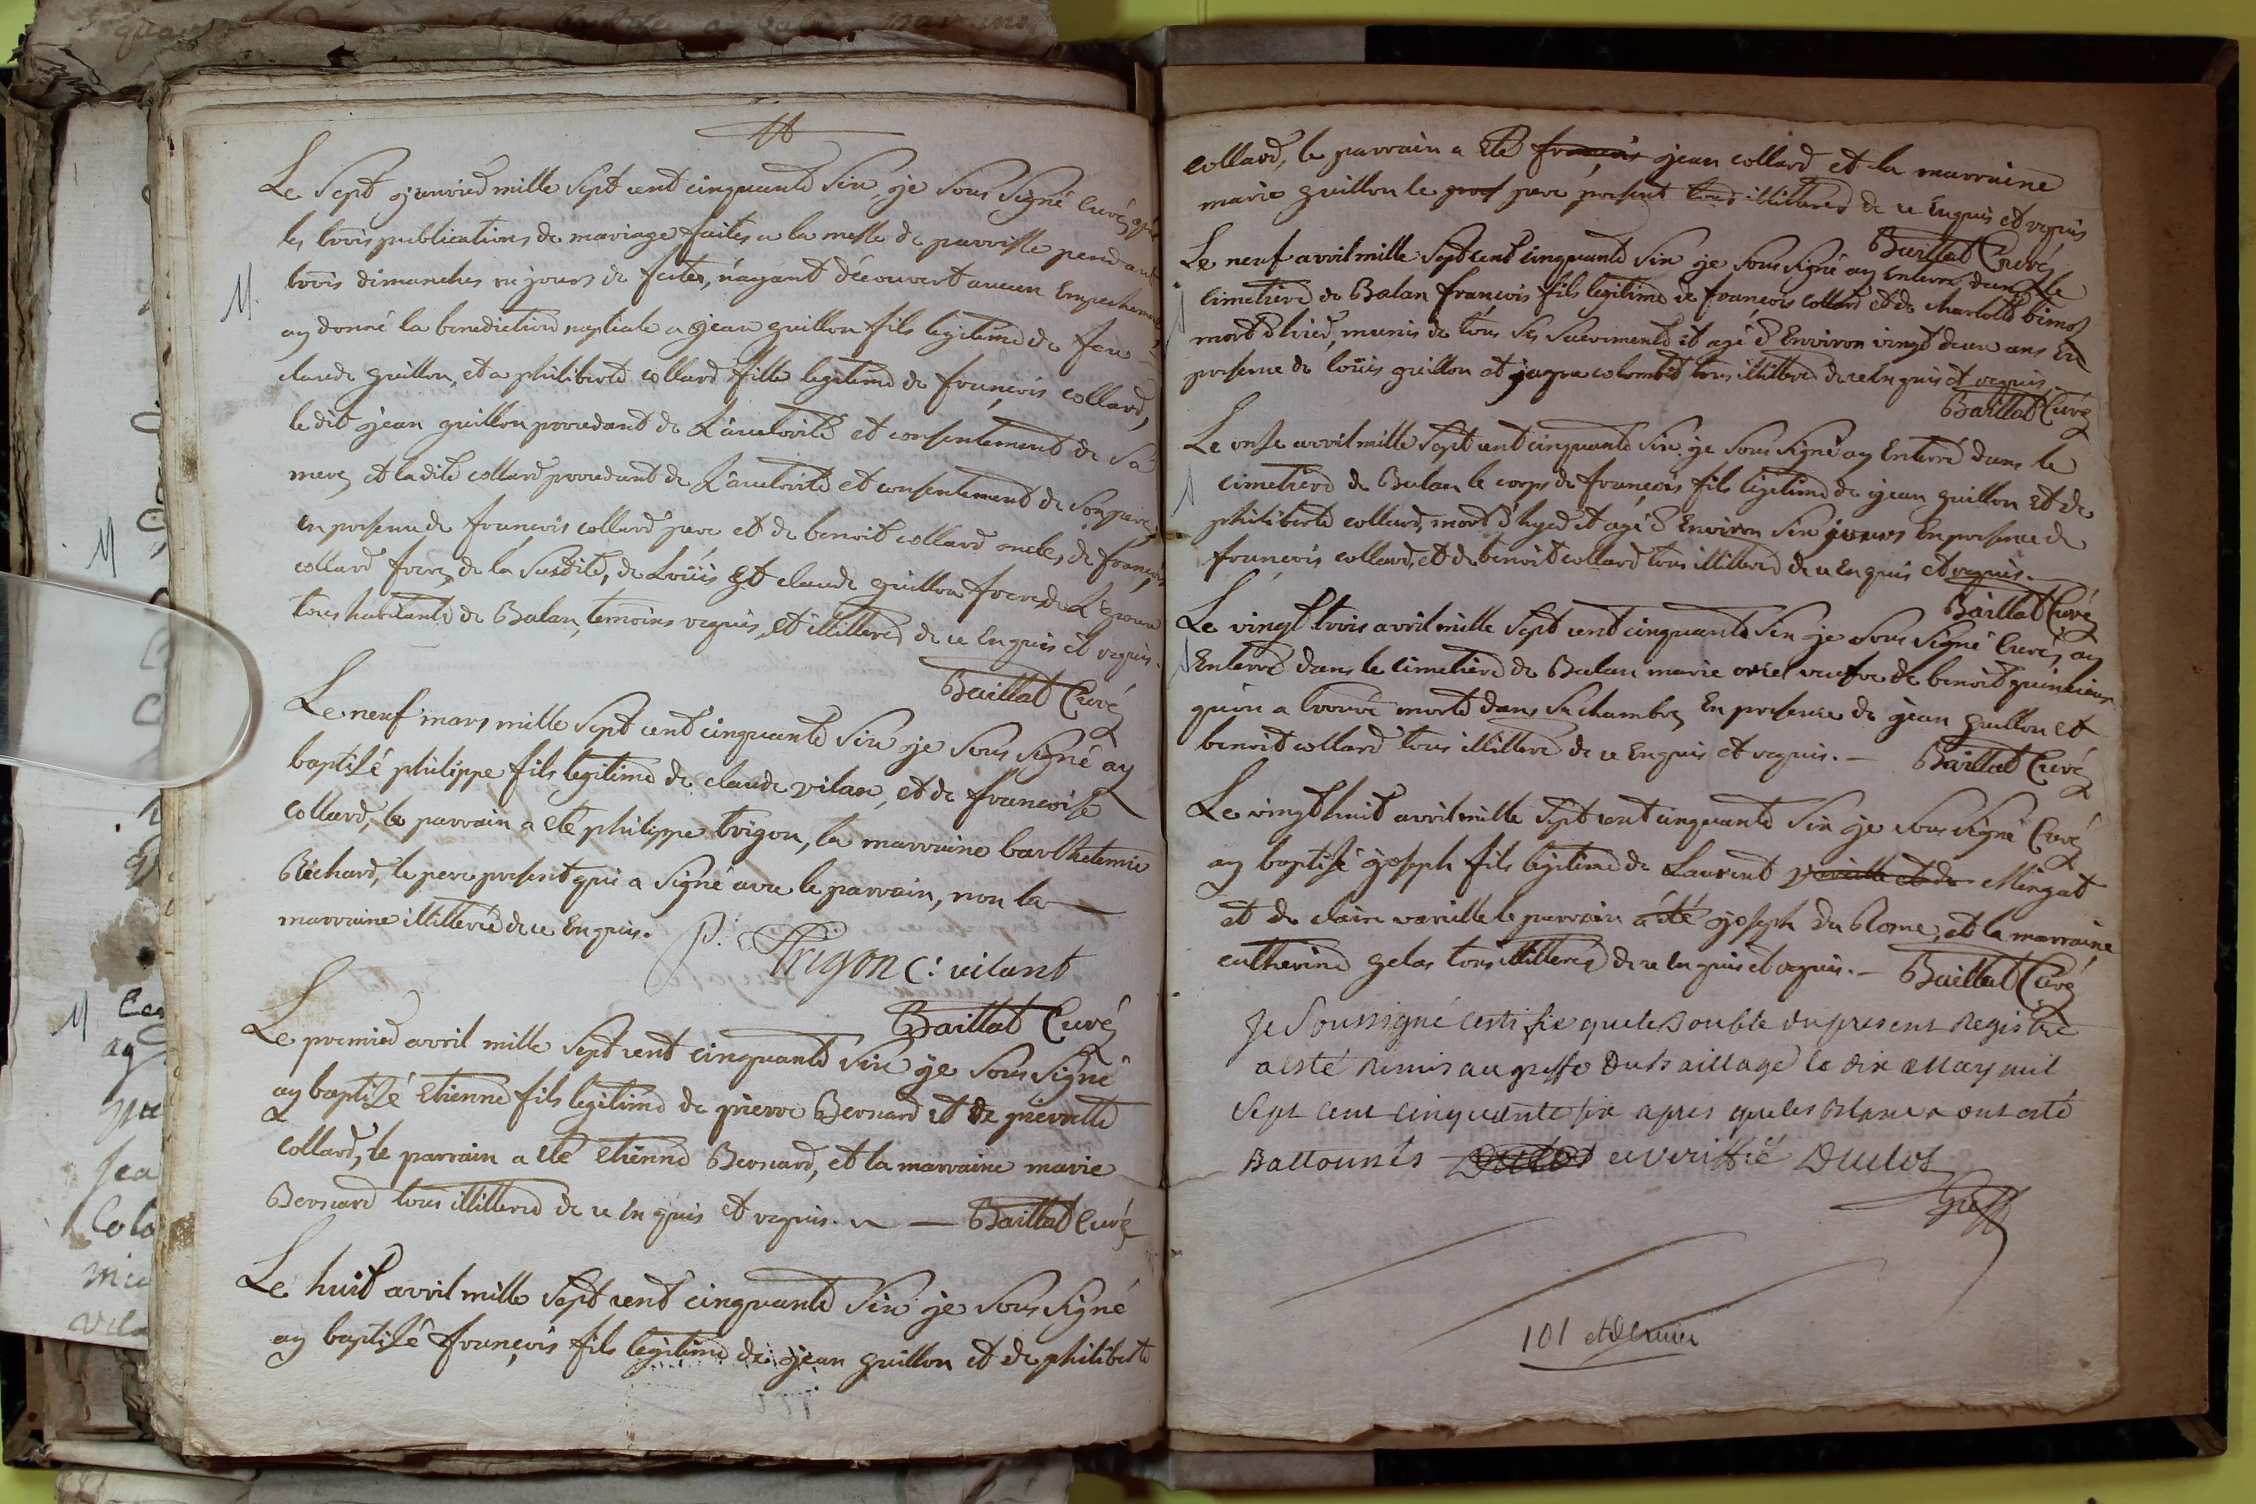 Le sept janvier mille sept cent cinquante six, je sous signé curé, après
les trois publications de mariage faites a la messe de parroisse pendant
trois dimanches ou jours de fetes, n'ayant découvert aucun Empechement
M.
ay donné la benediction nuptiale a jean guillon fils legitime de feu
claude guillon, et a philiberte collard fille legitime de françois collard,
le dit jean guillon procedant de L'autorité et consentement de sa
mere, et la dite collard procedant de L'autorité et consentement de son pere,
en presence de françois collard pere et de benoit collard oncle, de françois
collard frere, de la susdite, de Loüis et claude guillon freres de L'epoux
tous habitants de Balan, temoins requis, et illitteres de ce Enquis et requis.
Baillat Curé
Le neuf mars mille sept cent cinquante six je sous signé ay
baptisé philippe fils legitime de claude vilan, et de françoise
collard, le parrain a eté philippe trigon, la marraine barthelemie
Richard, le pere present qui a signé avec le parrain, non la
marraine illitterée de ce Enquis.
P. Trigon C: vilant
Baillat Curé
Le premier avril mille sept cent cinquante six je sous signé
ay baptisé Etienne fils legitime de pierre Bernard et de pierrette
collard, le parrain a eté etienne Bernard, et la marraine marie
Bernard tous illitteres de ce Enquis et requis. Baillat Curé
Le huit avril mille sept cent cinquante six je sous signé
ay baptisé françois fils legitime de jean guillon et de philiberte
collard, le parrain a eté françois jean collard et la marraine
marie guillon le pere present tous illitteres de ce Enquis et requis
Baillat Curé
Le neuf avril mille sept cent cinquante six je sous signé ay Enterré dans le
cimetiere de Balan françois fils legitime de françois collard et de charlotte
mort hier, munis de tous ses sacrements et agé d'Environ vingt deux ans En
presence de loüis guillon et jaque colombet tous illitteres de ce Enquis et requis
Baillat Curé
Le onse avril mille sept cent cinquante six je sous signé ay Enterré dans le
cimetiere de Balan le corps de françois fils legitime de jean guillon et de
philiberte collard, mort d'hyer et agé d'Environ six jours En presence de
françois collard, et de benoit collard tous illitteres de ce Enquis et requis.
Baillat Curé
Le vingt trois avril mille sept cent cinquante six je sous signé Curé, ay
Enterré dans le cimetiere de Balan marie veufve de benoit
qu'on a trouvé morte dans sa chambre, En presence de jean guillon et
benoit collard tous illitteres de ce Enquis et requis. Baillat Curé
Le vingt huit avril mille sept cent cinquante six je sous signé Curé
ay baptisé joseph fils legitime de Laurent vareille et de Mingat
et de claire vareille le parrain a été joseph Du Rome, et la marraine
catherine gelas tous illitteres de ce Enquis et requis. Baillat Curé
Je Soussigné Certifie que le Double du present Registre
a esté Remis au greffe Du Baillage le dix May mil
Sept Cent Cinquante six apres que les Blancs ont esté
Battonnés Duclos et veriffié Duclos
Greff
101 et dernier